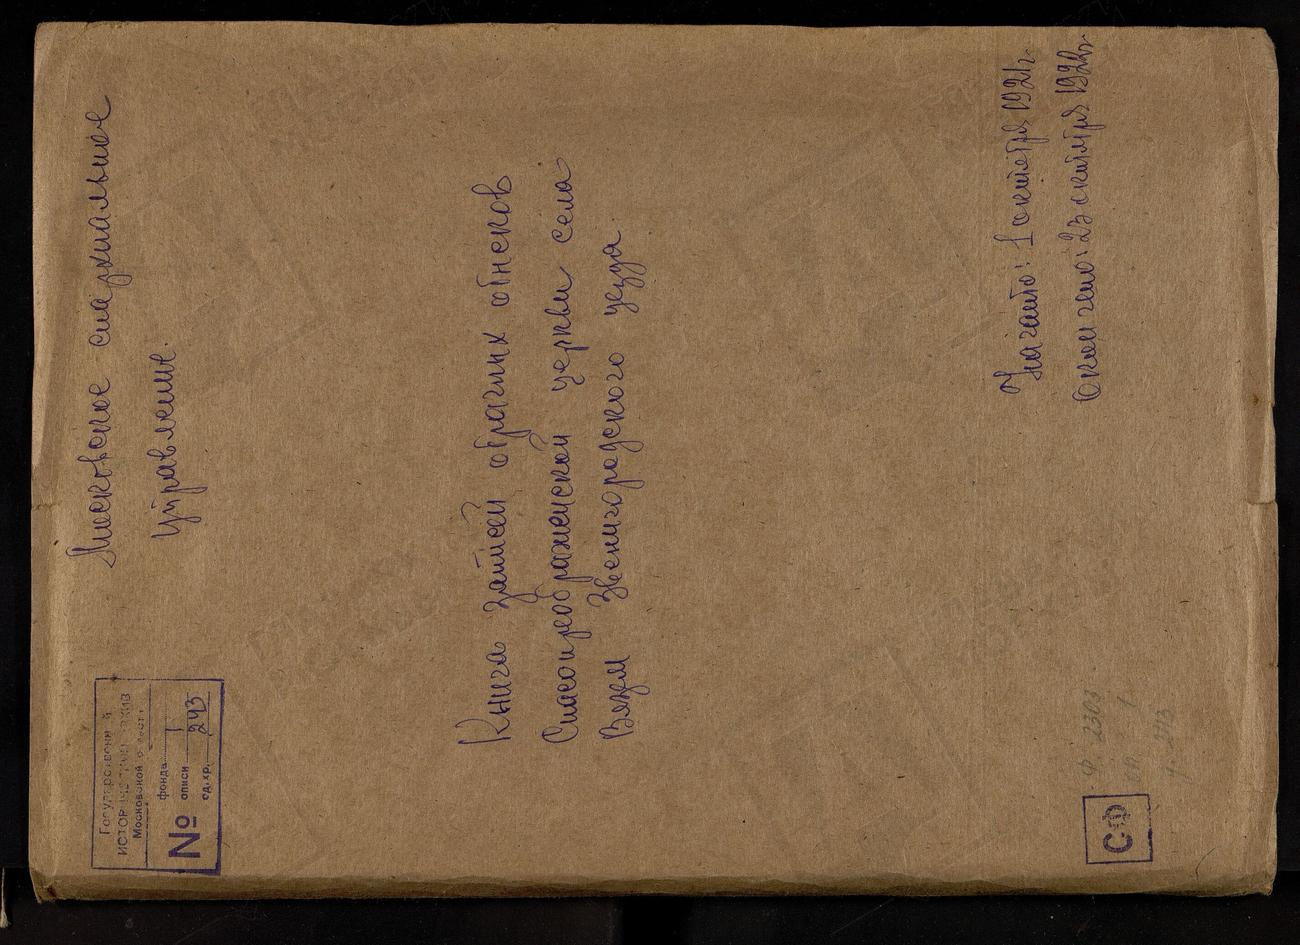 Московское епархиальное
управление.
Книга записей обрачных обысков
Спасопреображенской церкви села
Вязем Звенигородского уезда
Начато: 1 октября 1921г.
Окончено: 23 октября 1922г.
Государственный
ИСТОРИЧЕСКИЙ АРХИВ
Московской области
№ фонда
описи 1
ед. хр. 243
СФ
Ф. 2303
оп. 1
д. 243